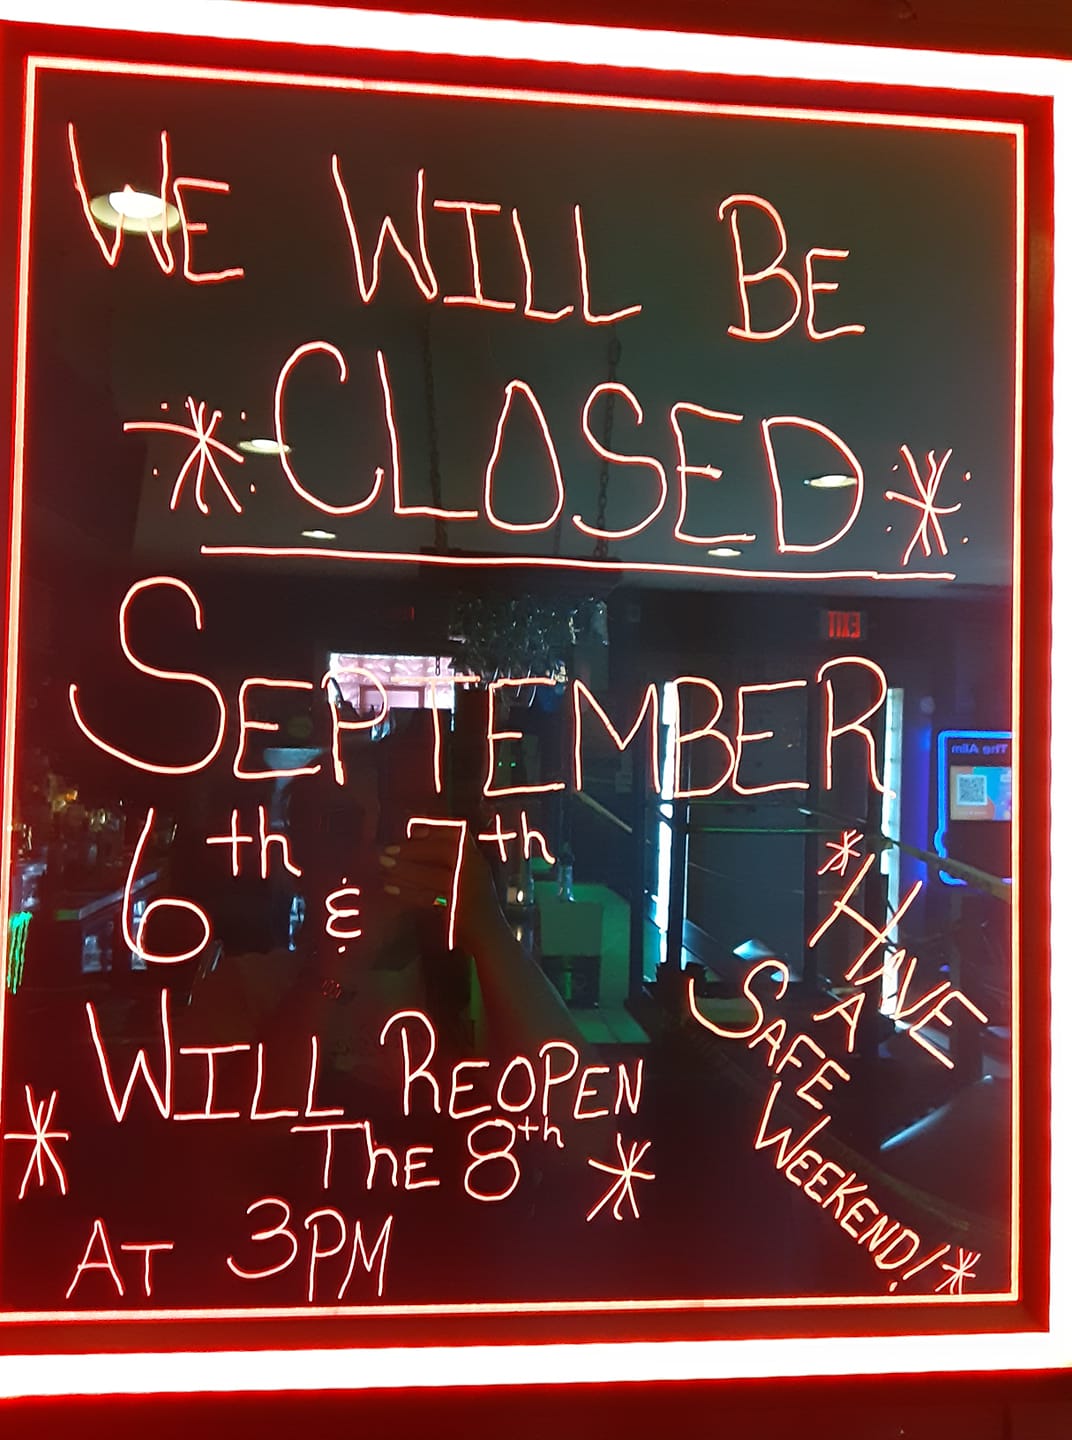 WE WILL BE
*CLOSED*
SEPTEMBER
6th & 7th
WILL REOPEN
THE 8th
AT 3PM
*HAVE
A
SAFE
WEEKEND!*
EXIT